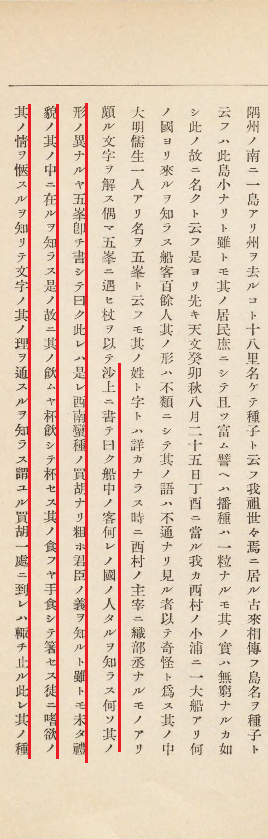 隅州ノ南ニ一島アリ州ヲ去ルコト十八里名ケテ種子ト云フ我祖世々焉ニ居ル古來相傳フ島名ヲ種子ト
云フハ此島小ナリト雖トモ其ノ居民庶ニシテ且ツ富ム譬ヘハ播種ハ一粒ナルモ其ノ實ハ無窮ナルカ如
シ此ノ故ニ名クト云フ是ヨリ先キ天文癸卯秋八月二十五日丁酉ニ當ル我カ西村ノ小浦ニ一大船アリ何
ノ國ヨリ來ルヲ知ラス船客百餘人其ノ形ハ不類ニシテ其ノ語ハ不通ナリ見ル者以テ奇怪ト爲ス其ノ中
大明儒生一人アリ名ヲ五峯ト云フモ其ノ姓ト字トハ詳カナラス時ニ西村ノ主宰ニ織部丞ナルモノアリ
頗ル文字ヲ解ス偶マ五峯ニ遇ヒ杖ヲ以テ沙上ニ書テ曰ク船中ノ客何レノ國ノ人タルヲ知ラス何ソ其ノ
形ノ異ナルヤ五峯卽チ書シテ曰ク此レハ是レ西南蠻種ノ賈胡ナリ粗ホ君臣ノ義ヲ知ルト雖トモ未タ禮
貌ノ其ノ中ニ在ルヲ知ラス是ノ故ニ其ノ飮ムヤ杯飮シテ杯セス其ノ食フヤ手食シテ箸セス徒ニ嗜欲ノ
其ノ情ヲ愜スルヲ知リテ文字ノ其ノ理ヲ通スルヲ知ラス謂ユル賈胡一處ニ到レハ輙チ止ル此レ其ノ種